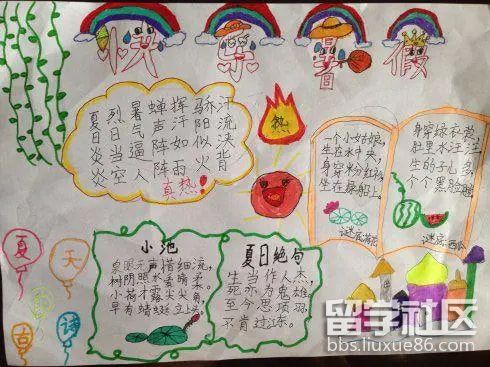 快乐暑假
夏日炎炎
烈日当空
暑气逼人
蝉声阵阵
挥汗如雨
骄阳似火
汗流浃背
真热!
热
一个小姑娘,
生在水中央,
身穿粉红衫,
坐在绿船上。
谜底:荷花
身穿绿衣裳,
肚里水汪汪,
生的子儿多,
个个黑脸膛。
谜底:西瓜
夏天古诗
小池
泉眼无声惜细流,
树阴照水爱晴柔。
小荷才露尖尖角,
早有蜻蜓立上头。
夏日绝句
生当作人杰,
死亦为鬼雄。
至今思项羽,
不肯过江东。
留学社区
bbs.liuxue86.com